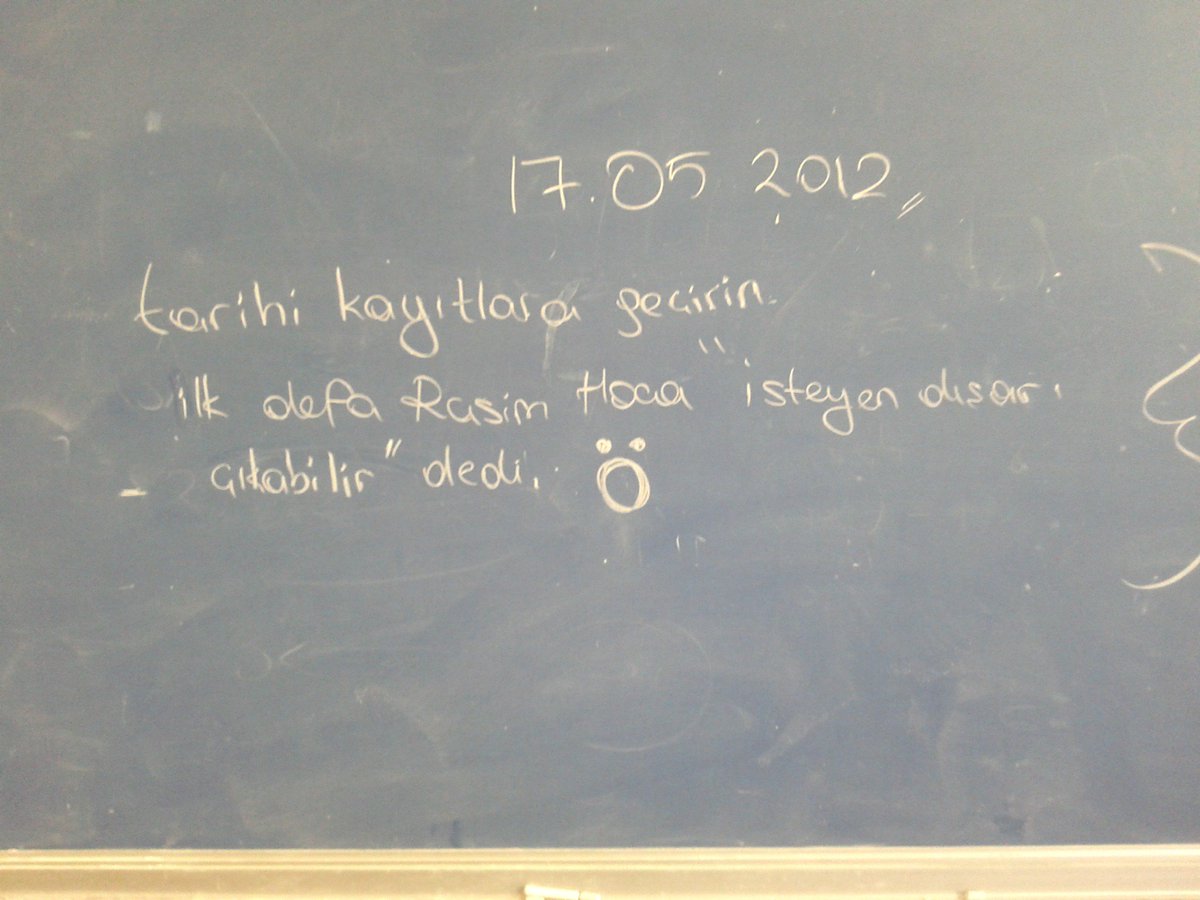 17.05 2012,,
tarihi kayıtlara geçirin.
ilk defa Rasim Hoca "isteyen dışarı
çıkabilir" dedi. Ö